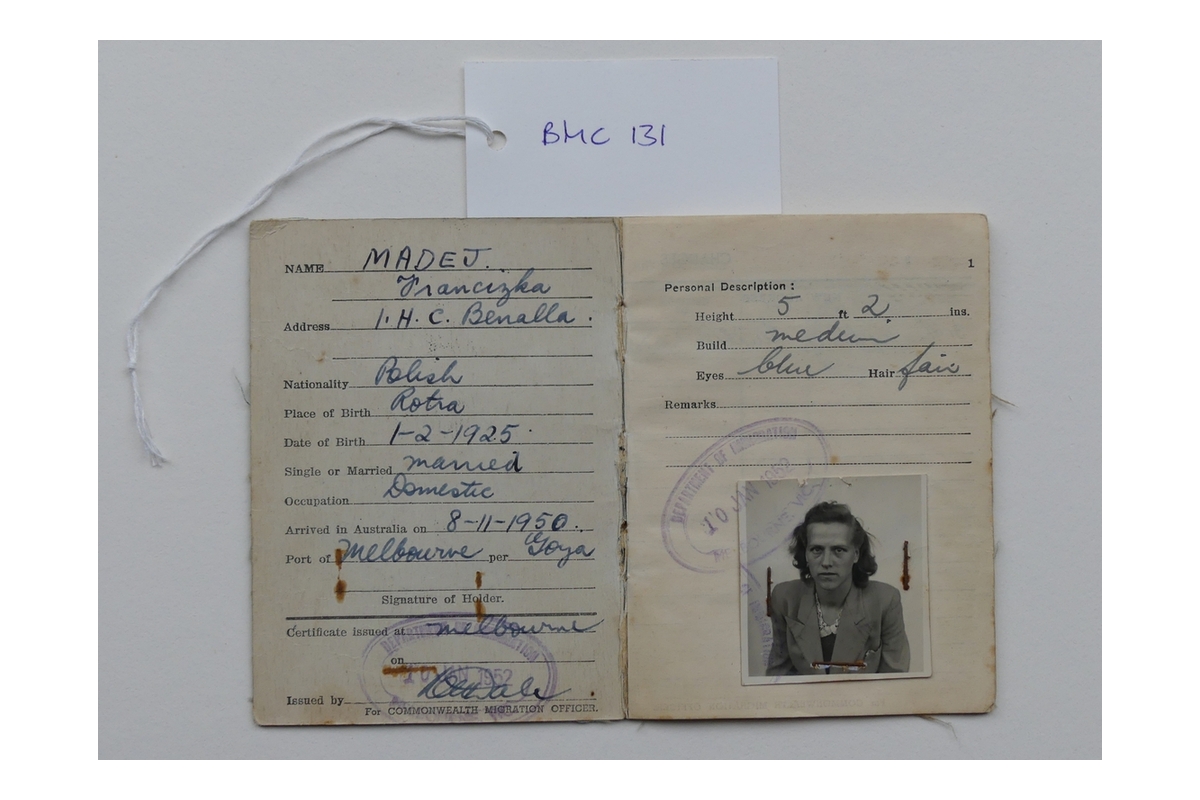 BMC 131
NAME MADEJ.
Francizka
Address I. H. C. Benalla.
Nationality Polish
Place of Birth Rotra
Date of Birth 1-2-1925.
Single or Married married
Occupation Domestic
Arrived in Australia on 8-11-1950.
Port of Melbourne per Goya
Signature of Holder.
Certificate issued at melbourne
on 10 JAN 1952
Issued by
For COMMONWEALTH MIGRATION OFFICER.
DEPARTMENT OF IMMIGRATION
1
Personal Description :
Height 5 ft 2 ins.
Build medium
Eyes blue Hair fair
Remarks
DEPARTMENT OF IMMIGRATION
10 JAN 1952